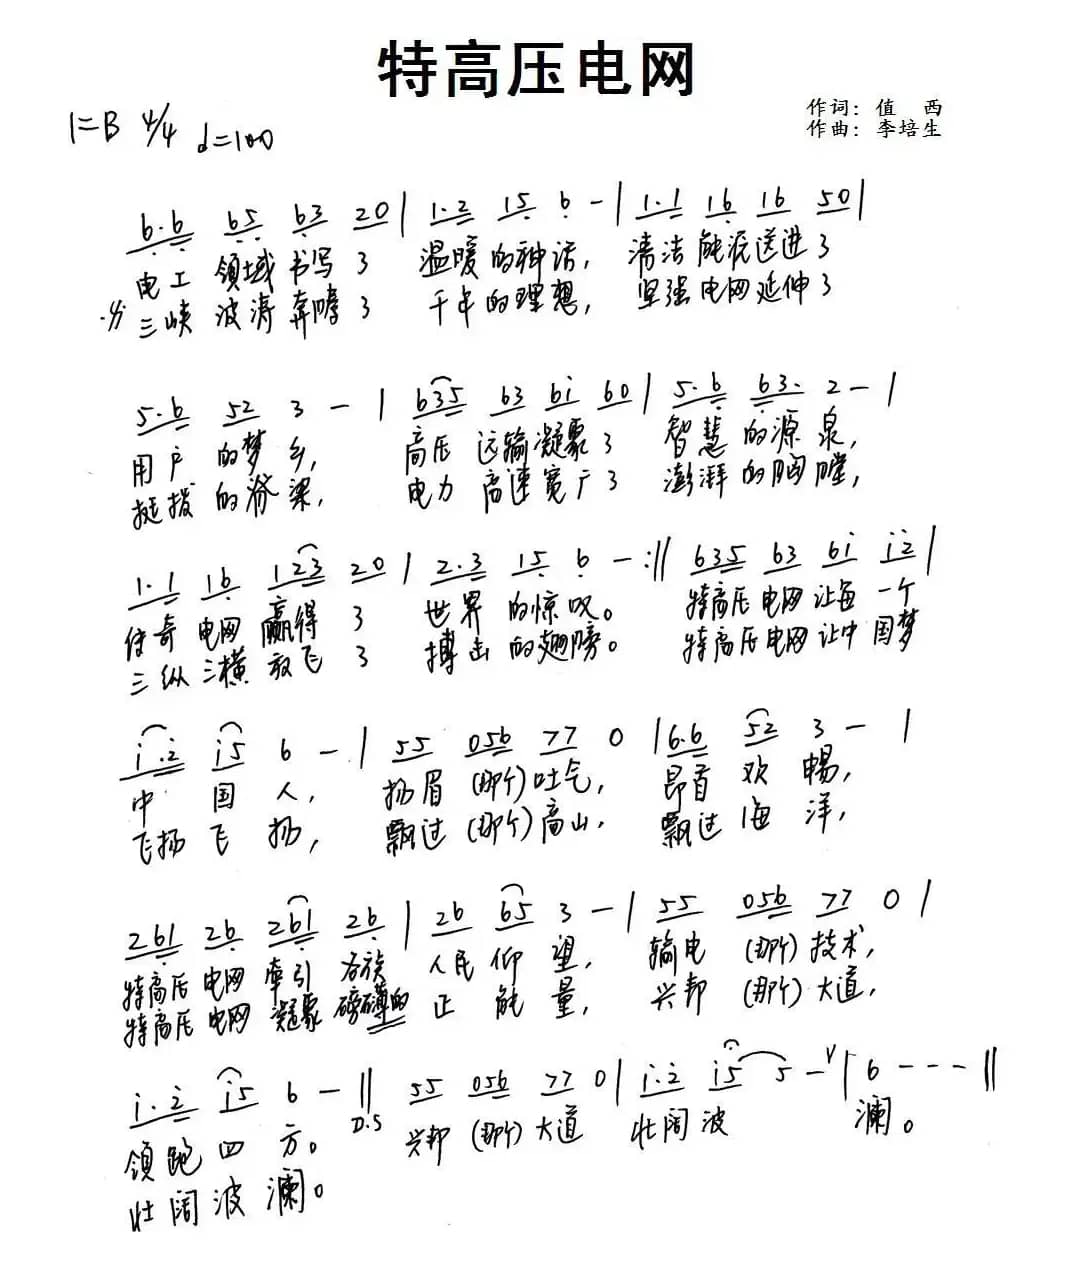 特高压电网
作词：值　西
作曲：李培生
1=B 4/4 d=100
6·6 65 63 20 | 1·2 15 6 - | 1·1 16 16 50 |
电工 领域 书写了 温暖的神话， 清洁能源送进了
三峡波涛奔腾了 千年的理想， 坚强电网延伸了
5·6 52 3 - | 635 63 6i 60 | 5·6 63· 2 - |
用户的梦乡， 高压运输凝聚了 智慧的源泉，
挺拔的脊梁， 电力高速宽广了 澎湃的胸膛，
1·1 16 123 20 | 2·3 15 6 - :|| 635 63 6i i2 |
传奇电网赢得了 世界的惊叹。 特高压电网让每一个
三纵三横放飞了 搏击的翅膀。 特高压电网让中国梦
i·2 i5 6 - | 55 056 77 0 | 6·6 52 3 - |
中国人， 扬眉(那个)吐气， 昂首欢畅，
飞扬飞扬， 飘过(那个)高山， 飘过海洋，
261 26 261 26 | 26 65 3 - | 55 056 77 0 |
特高压电网牵引各族 人民仰望， 输电(那个)技术，
特高压电网凝聚磅礴的 正能量， 兴邦(那个)大道，
i·2 i5 6 - || D.S 55 056 77 0 | i·2 i5 5 - V | 6 - - - ||
领跑四方。 兴邦(那个)大道 壮阔波 澜。
壮阔波澜。